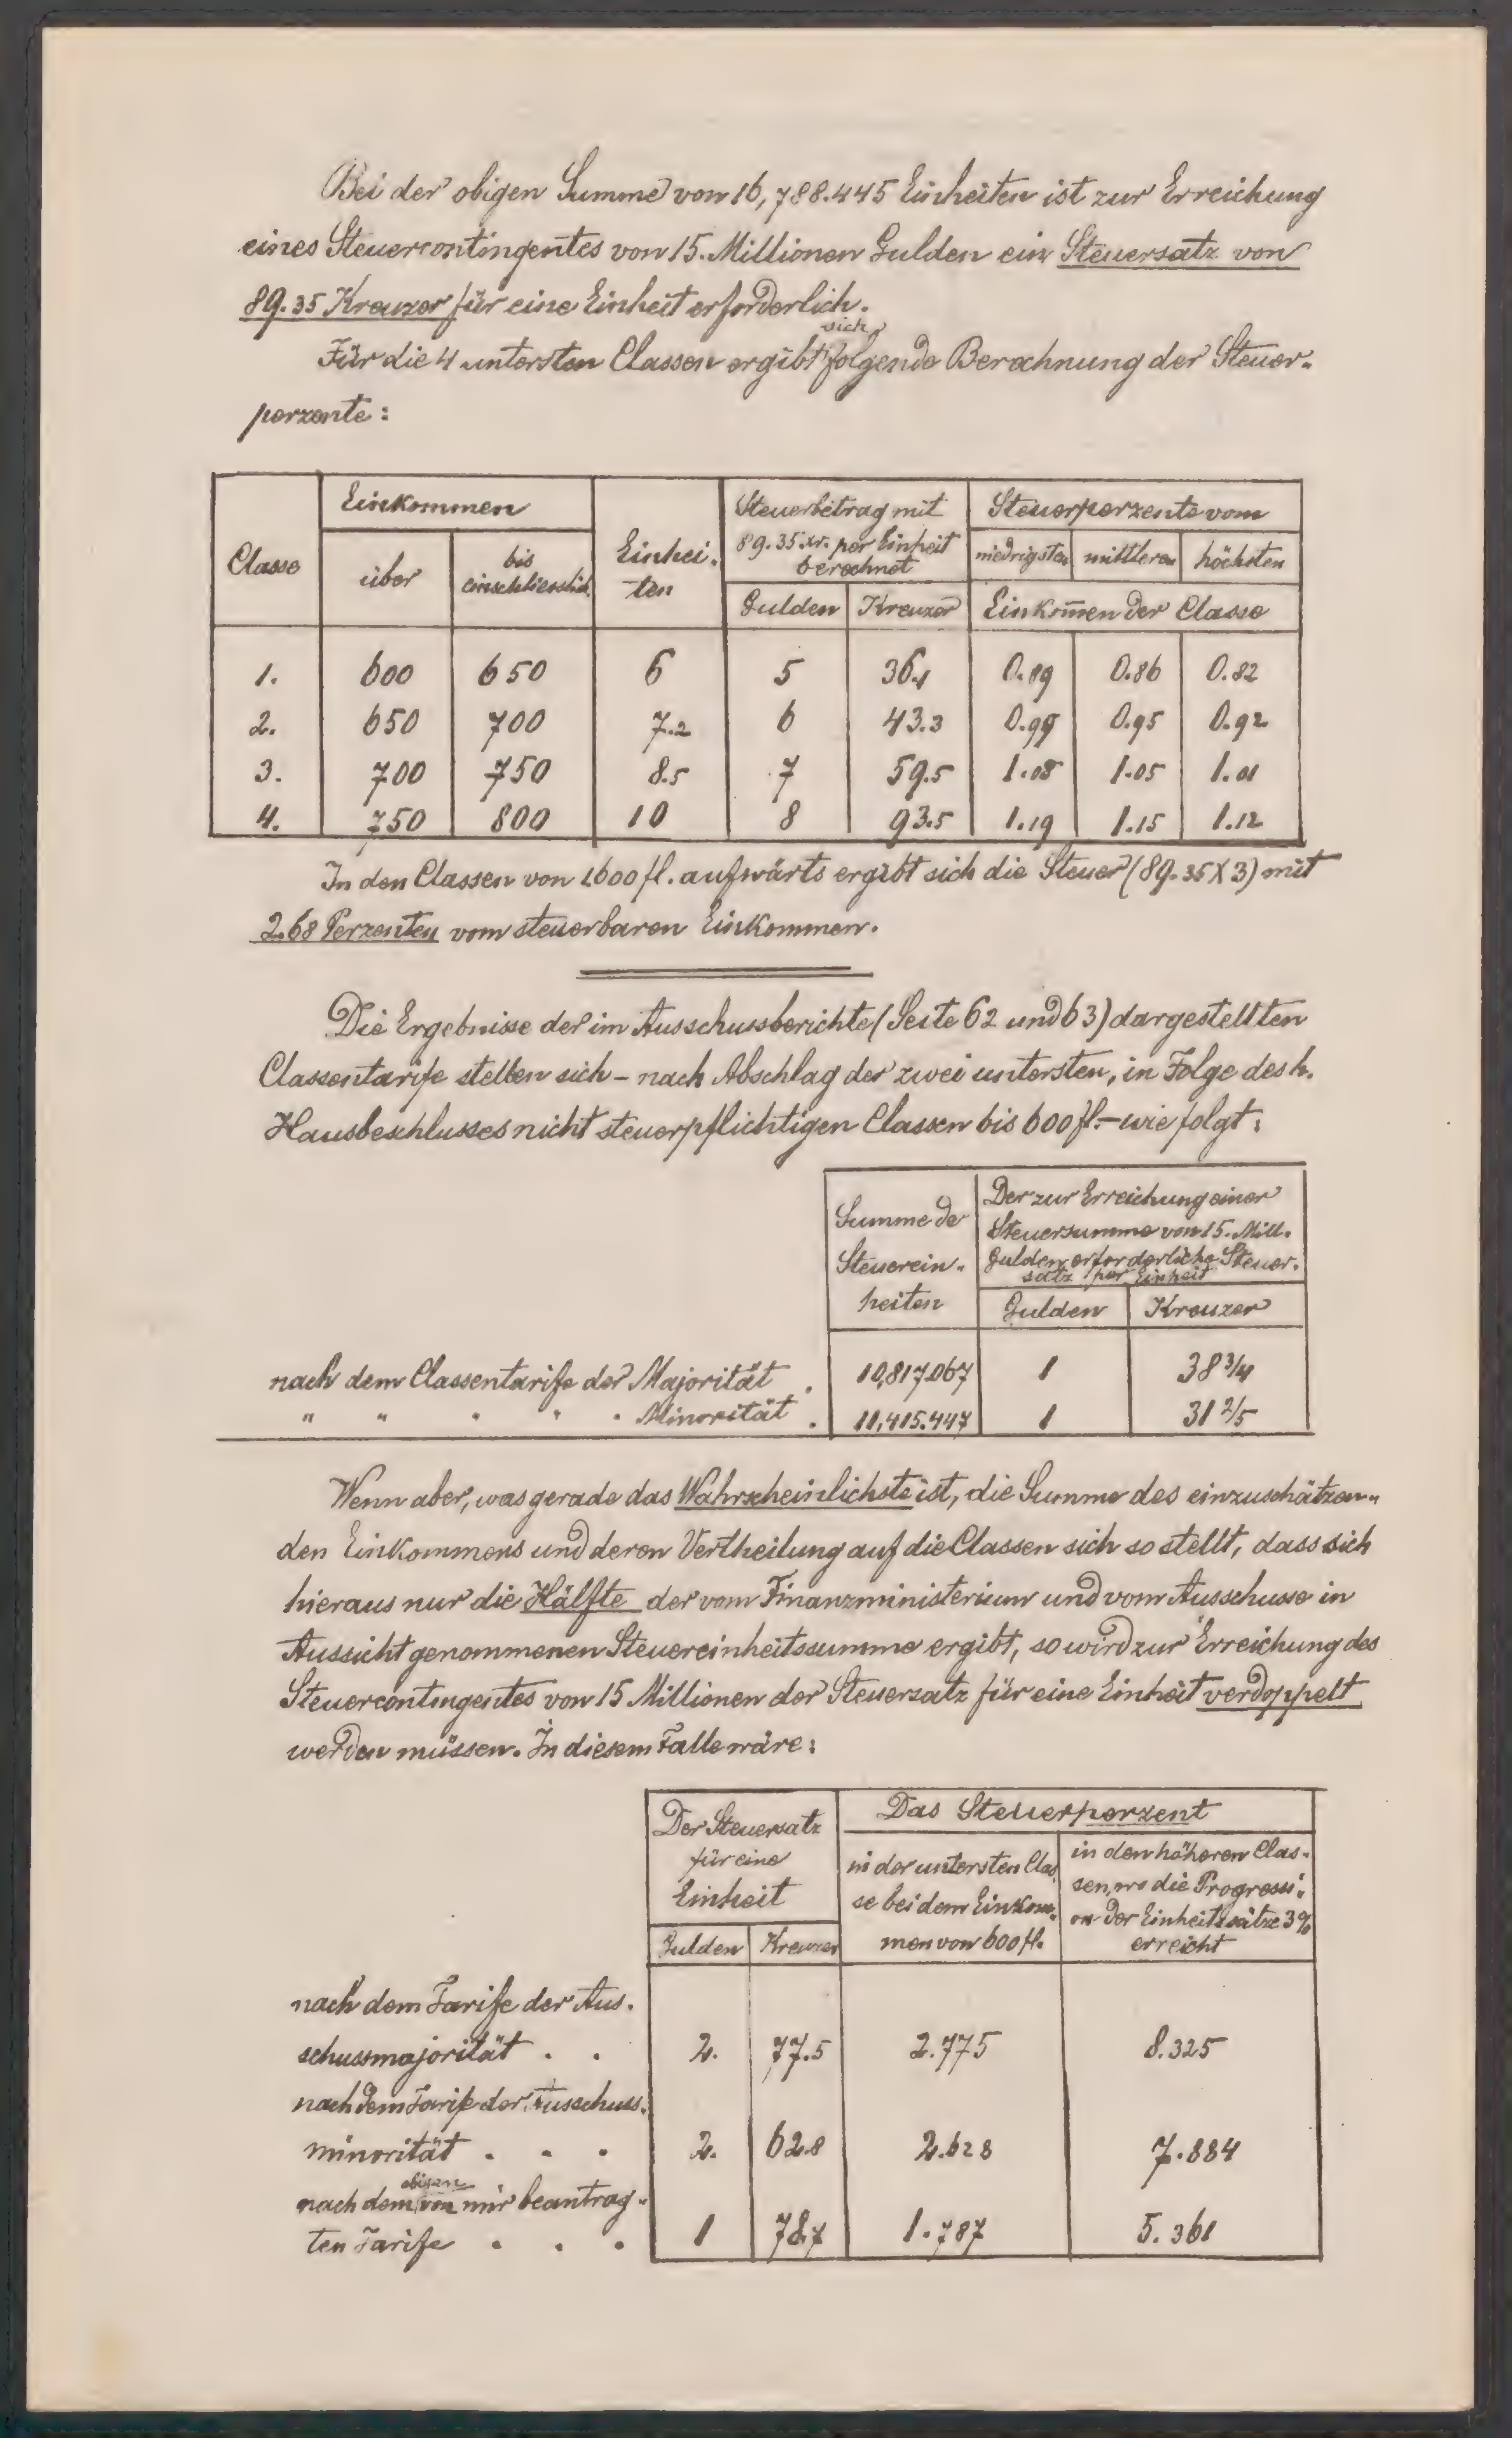 Bei der obigen Summe von 16,788.445 Einheiten ist zur Erreichung
eines Steuercontingentes von 15. Millionen Gulden ein Steuersatz von
89.35 Kreuzer für eine Einheit erforderlich.
sich
Für die 4 untersten Classen ergibt folgende Berechnung der Steuer-
perzente:
Classe Einkommen Einhei- Steuerbetrag mit Steuerperzente vom
über bis ten 89.35 kr. per Einheit niedrigsten mittleren höchsten
einschliesslich berechnet
Gulden Kreuzer Einkom̄en der Classe
1. 600 650 6 5 36.1 0.89 0.86 0.82
2. 650 700 7.2 6 43.3 0.99 0.95 0.92
3. 700 750 8.5 7 59.5 1.08 1.05 1.01
4. 750 800 10 8 93.5 1.19 1.15 1.12
In den Classen von 1600 fl. aufwärts ergibt sich die Steuer (89.35 X 3) mit
2.68 Perzenten vom steuerbaren Einkommen.
Die Ergebnisse der im Ausschussberichte (Seite 62 und 63) dargestellten
Classentarife stellen sich – nach Abschlag der zwei untersten, in Folge des h.
Hausbeschlusses nicht steuerpflichtigen Classen bis 600 fl. – wie folgt:
Summe de Der zur Erreichung einer
Steuersumme von 15. Mill.
Steuerein- Gulden erforderliche Steuer-
satz per Einheit
heiten Gulden Kreuzer
nach dem Classentarife der Majorität . 10,817.067 1 38 3/4
" " " " " Minorität . 11,415.447 1 31 2/5
Wenn aber, was gerade das Wahrscheinlichste ist, die Summe des einzuschätzen-
den Einkommens und deren Vertheilung auf die Classen sich so stellt, dass sich
hieraus nur die Hälfte der vom Finanzministerium und vom Ausschusse in
Aussicht genommenen Steuereinheitssumme ergibt, so wird zur Erreichung des
Steuercontingentes von 15 Millionen der Steuersatz für eine Einheit verdoppelt
werden müssen. In diesem Falle wäre:
Der Steuersatz Das Steuerperzent
für eine in der untersten Clas- in den höheren Clas-
Einheit se bei dem Einkom- sen, wo die Progressi-
men von 600 fl. on der Einheitssätze 3%
Gulden Kreuzer erreicht
nach dem Tarife der Aus-
schussmajorität . . 2. 77.5 2.775 8.325
nach dem Tarife der Ausschuss-
minorität . . . 2. 62.8 2.628 7.884
obigen
nach dem von mir beantrag-
ten Tarife . . . 1 78.7 1.787 5.361